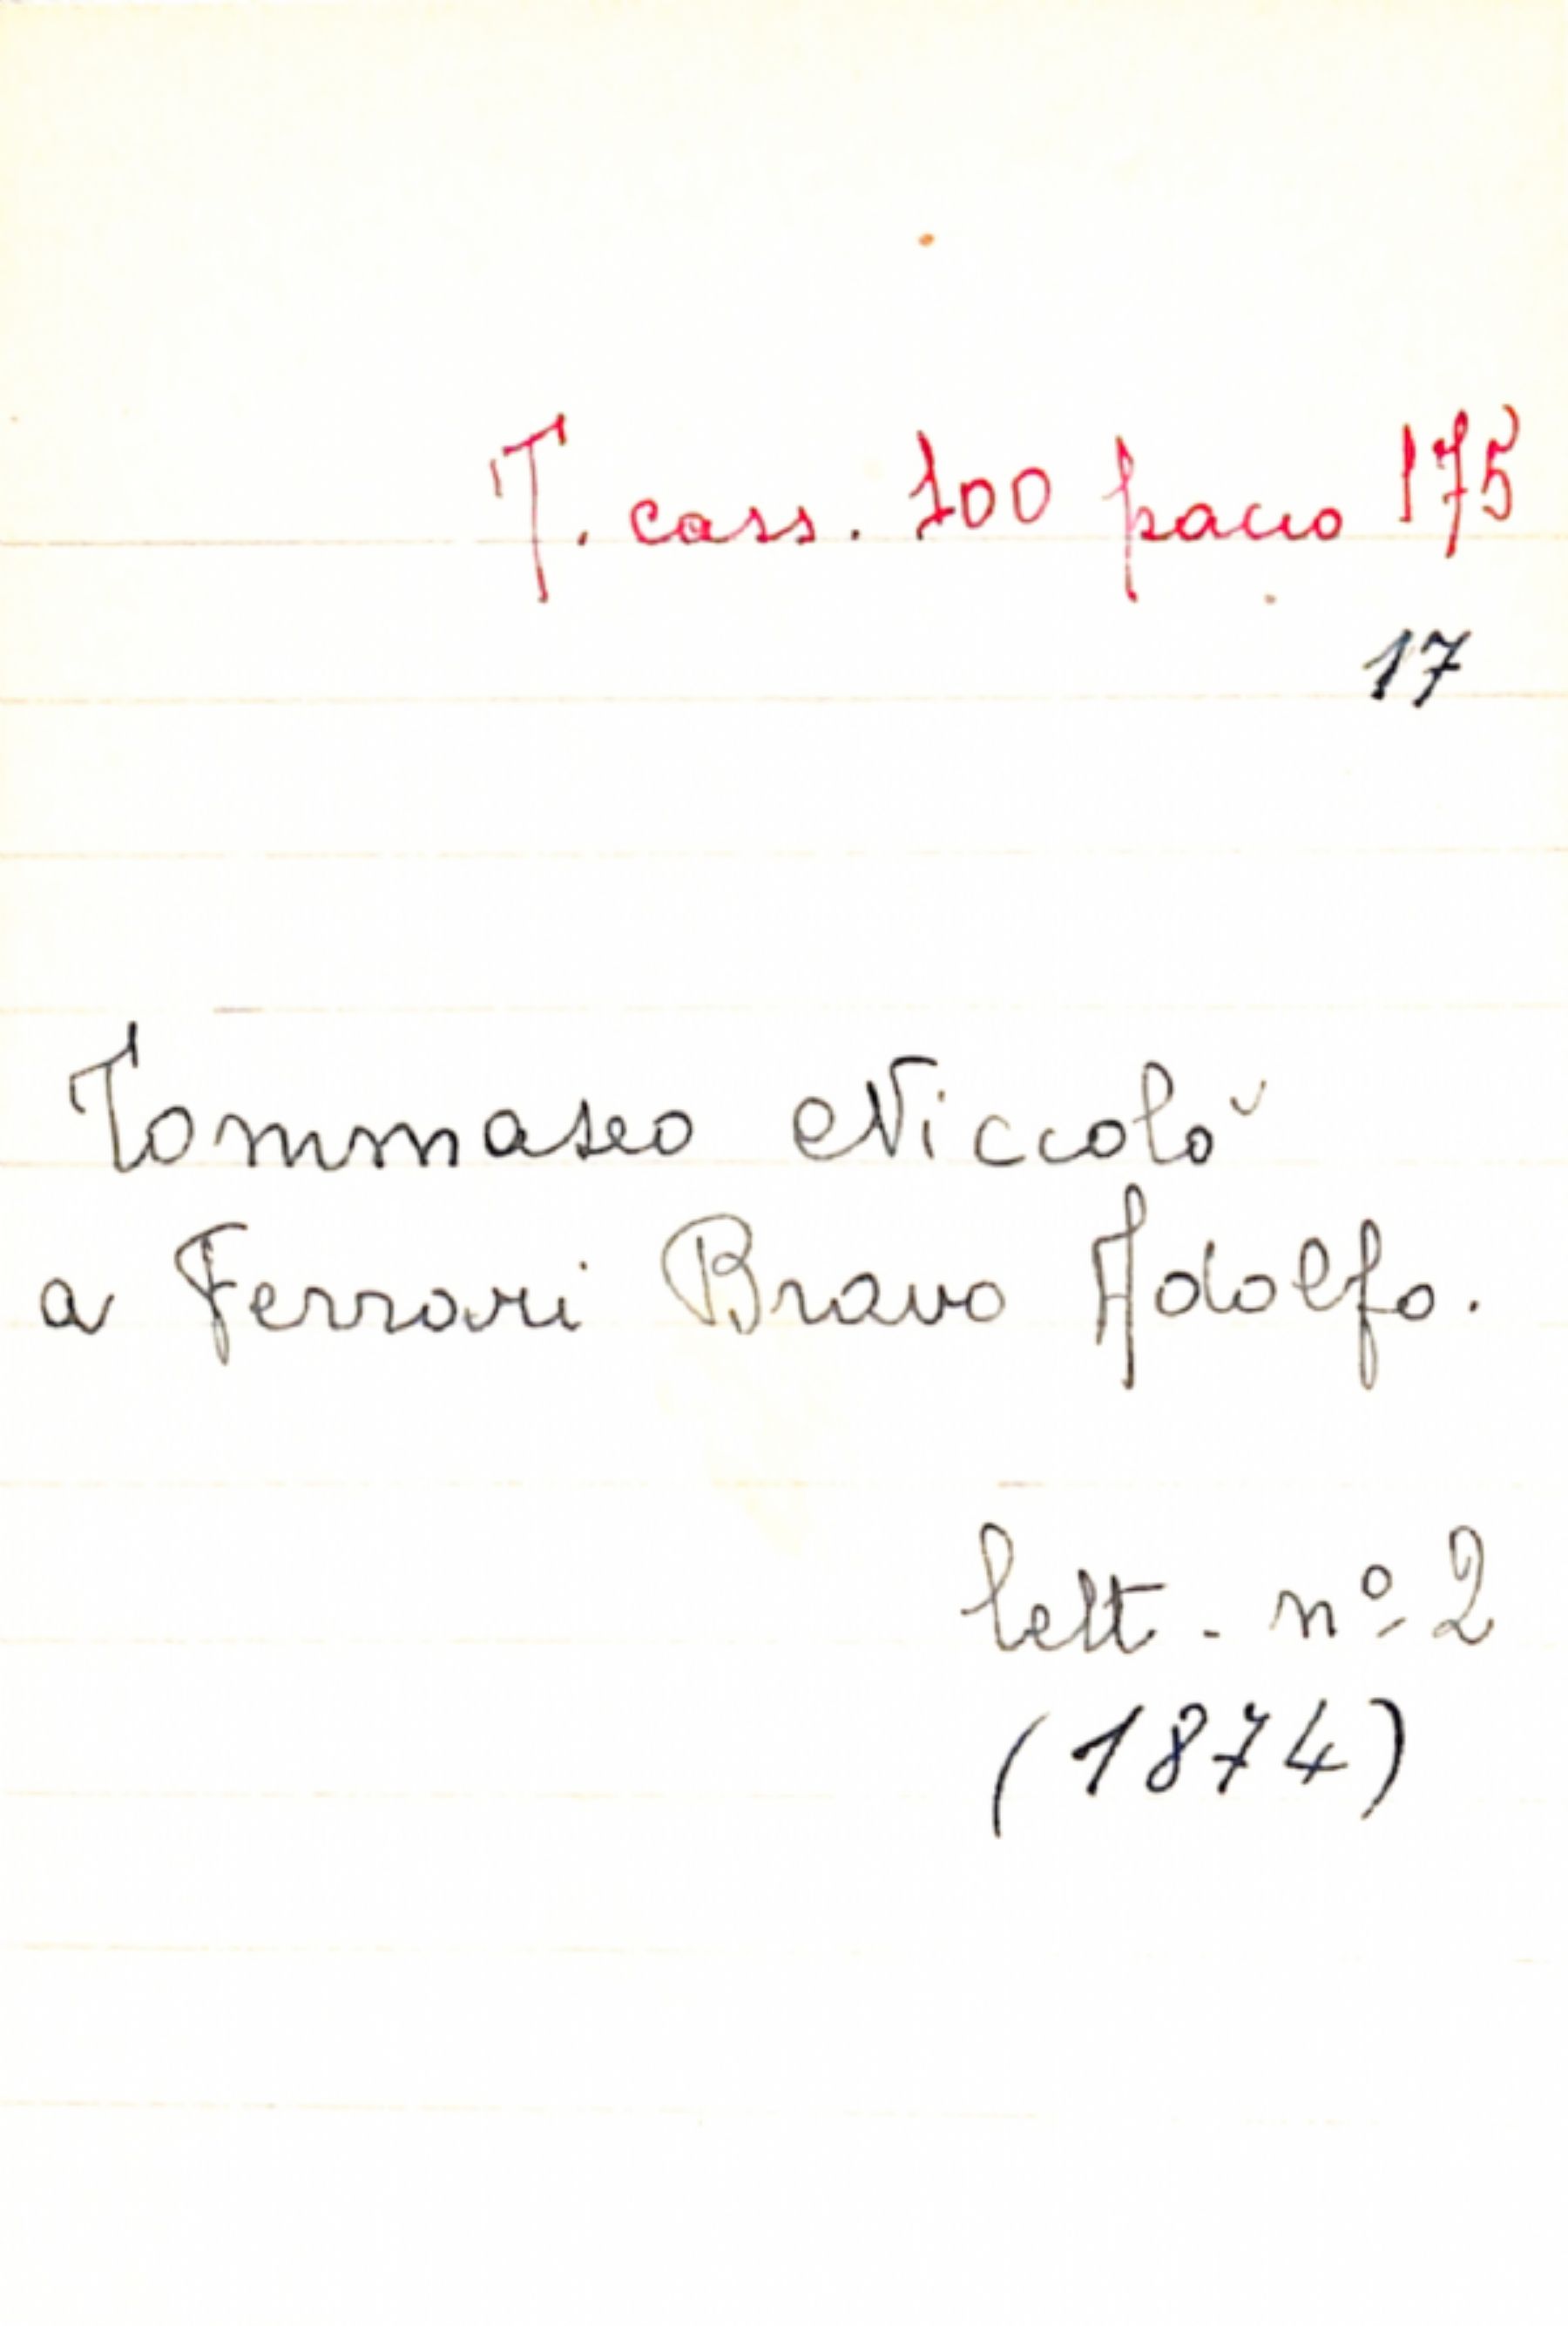 T. cass. 100 pacco 175
17
Tommaseo Niccolò
a Ferrari Bravo Adolfo.
lett. nº 2
(1874)